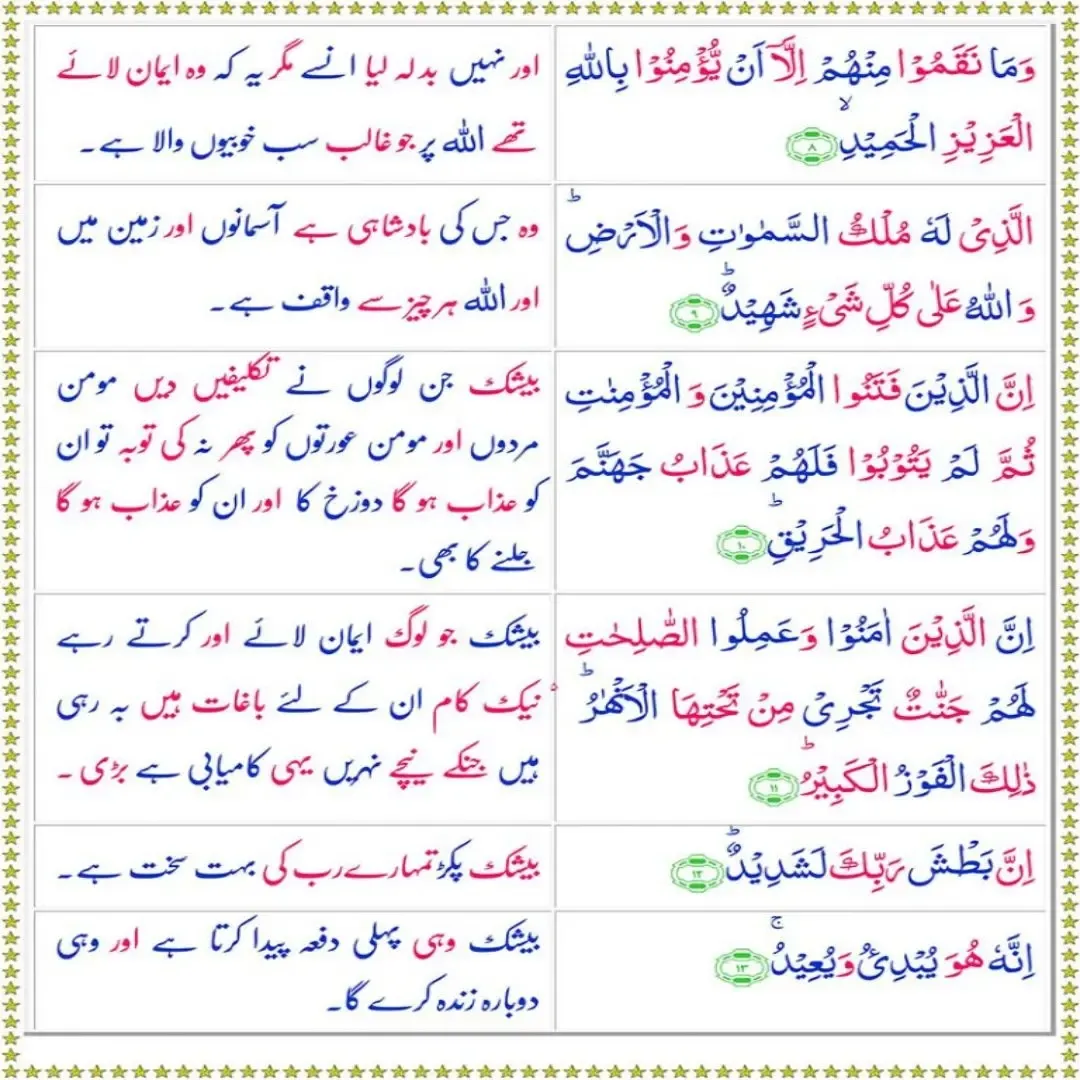 وَمَا نَقَمُوْا مِنْهُمْ اِلَّاۤ اَنْ يُّؤْمِنُوْا بِاللّٰهِ
الْعَزِيْزِ الْحَمِيْدِۙ ۸
اور نہیں بدلہ لیا انسے مگر یہ کہ وہ ایمان لائے
تھے اللہ پر جو غالب سب خوبیوں والا ہے۔
الَّذِىْ لَهٗ مُلْكُ السَّمٰوٰتِ وَالْاَرْضِؕ
وَ اللّٰهُ عَلٰى كُلِّ شَىْءٍ شَهِيْدٌؕ ۹
وہ جس کی بادشاہی ہے آسمانوں اور زمین میں
اور اللہ ہر چیز سے واقف ہے۔
اِنَّ الَّذِيْنَ فَتَنُوا الْمُؤْمِنِيْنَ وَ الْمُؤْمِنٰتِ
ثُمَّ لَمْ يَتُوْبُوْا فَلَهُمْ عَذَابُ جَهَنَّمَ
وَلَهُمْ عَذَابُ الْحَرِيْقِؕ ۱۰
بیشک جن لوگوں نے تکلیفیں دیں مومن
مردوں اور مومن عورتوں کو پھر نہ کی توبہ تو ان
کو عذاب ہو گا دوزخ کا اور ان کو عذاب ہو گا
جلنے کا بھی۔
اِنَّ الَّذِيْنَ اٰمَنُوْا وَعَمِلُوا الصّٰلِحٰتِ
لَهُمْ جَنّٰتٌ تَجْرِىْ مِنْ تَحْتِهَا الْاَنْهٰرُ ؕ
ذٰلِكَ الْفَوْزُ الْكَبِيْرُؕ ۱۱
بیشک جو لوگ ایمان لائے اور کرتے رہے
نیک کام ان کے لئے باغات ہیں بہ رہی
ہیں جنکے نیچے نہریں یہی کامیابی ہے بڑی ۔
اِنَّ بَطْشَ رَبِّكَ لَشَدِيْدٌؕ ۱۲
بیشک پکڑ تمہارے رب کی بہت سخت ہے۔
اِنَّهٗ هُوَ يُبْدِئُ وَيُعِيْدُۚ ۱۳
بیشک وہی پہلی دفعہ پیدا کرتا ہے اور وہی
دوبارہ زندہ کرے گا۔